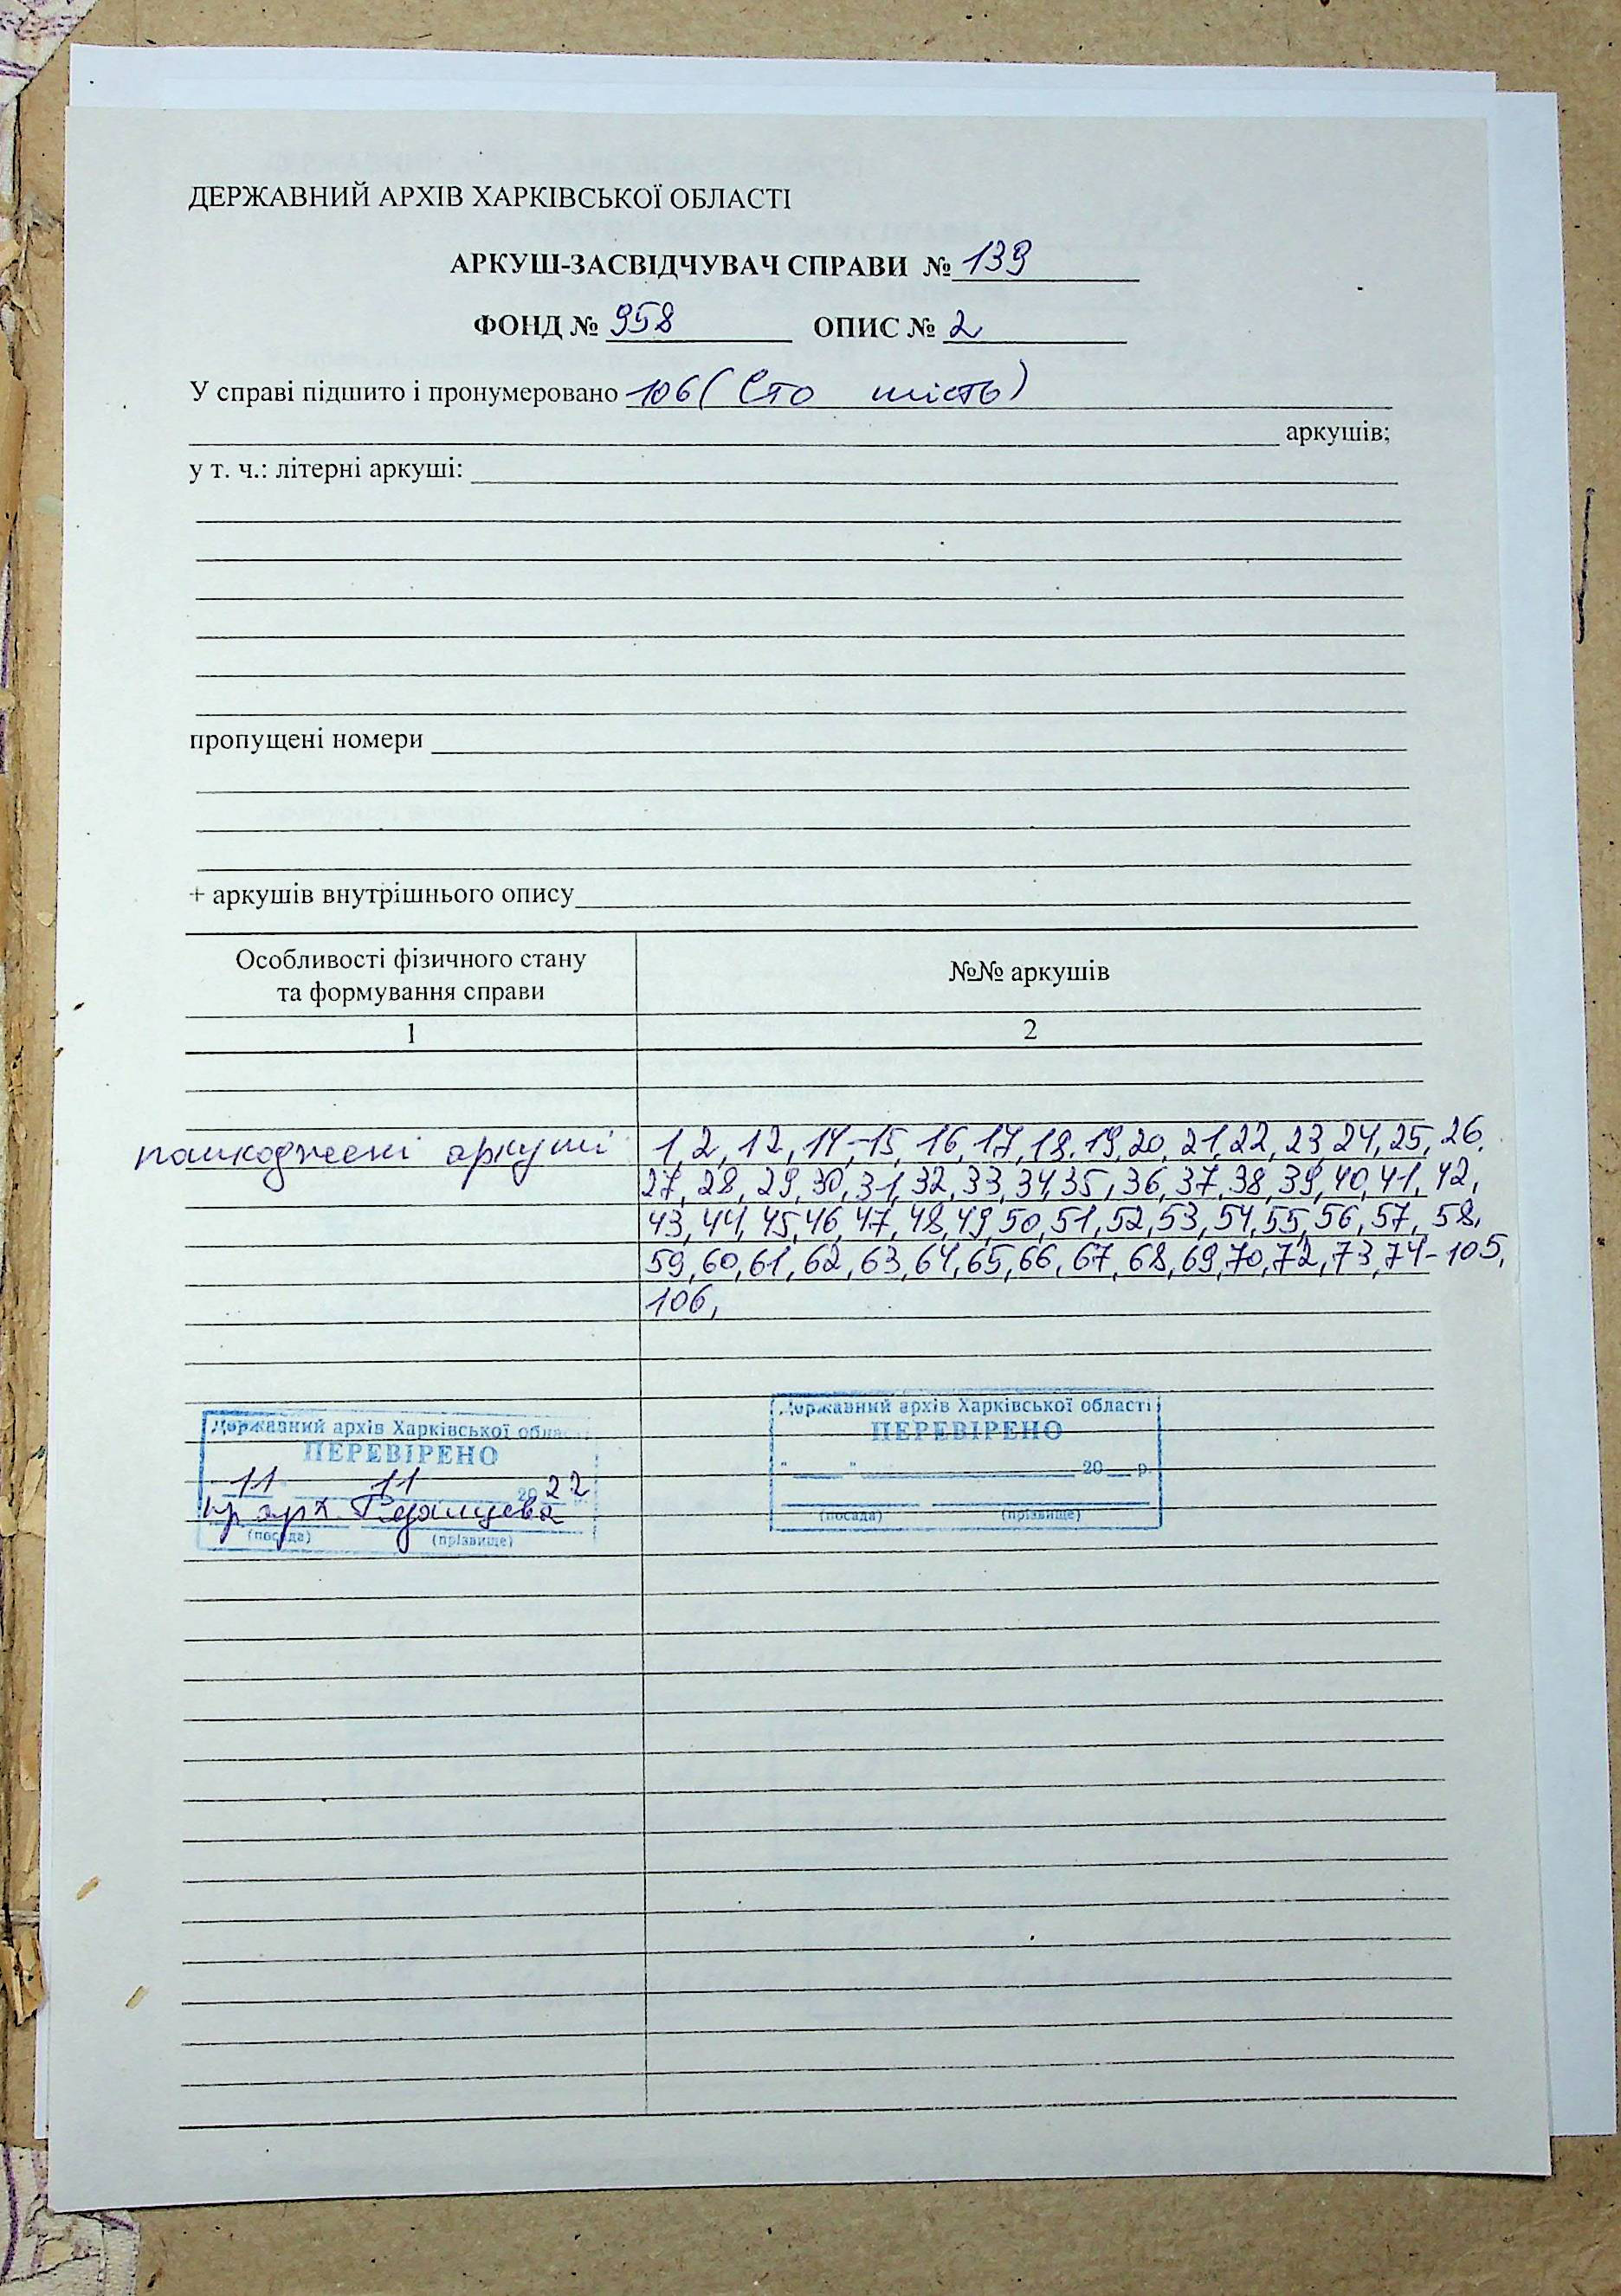 ДЕРЖАВНИЙ АРХІВ ХАРКІВСЬКОЇ ОБЛАСТІ
АРКУШ-ЗАСВІДЧУВАЧ СПРАВИ № 139
ФОНД № 958 ОПИС № 2
У справі підшито і пронумеровано 106 ( Сто шість)
аркушів;
у т. ч.: літерні аркуші:
пропущені номери
+ аркушів внутрішнього опису
Особливості фізичного стану
та формування справи
№№ аркушів
1
2
пошкоджені аркуші
1, 2, 12, 14-15, 16, 17, 18, 19, 20, 21, 22, 23, 24, 25, 26,
27, 28, 29, 30, 31, 32, 33, 34, 35, 36, 37, 38, 39, 40, 41, 42,
43, 44, 45, 46, 47, 48, 49, 50, 51, 52, 53, 54, 55, 56, 57, 58,
59, 60, 61, 62, 63, 64, 65, 66, 67, 68, 69, 70, 72, 73, 74-105,
106,
Державний архів Харківської облас
ПЕРЕВІРЕНО
11 11 2022
арх.
(посада) (прізвище)
Державний архів Харківської області
ПЕРЕВІРЕНО
" " 20 р.
(посада) (прізвище)